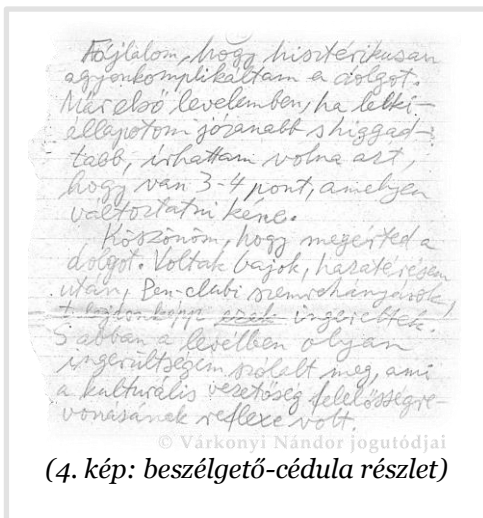 Fájlalom, hogy hisztérikusan
agyonkomplikáltam a dolgot.
Már első levelemben, ha lelki-
állapotom józanabb s higgad-
tabb, írhattam volna azt,
hogy van 3-4 pont, amelyen
változtatni kéne.
Köszönöm, hogy megérted a
dolgot. Voltak bajok, hazatérésem
után, Pen-clubi szemrehányások,
ingereltek.
S abban a levélben olyan
ingerültségem szólalt meg, ami
a kulturális vezetőség felelősségre-
vonásának reflexe volt.
© Várkonyi Nándor jogutódjai
(4. kép: beszélgető-cédula részlet)